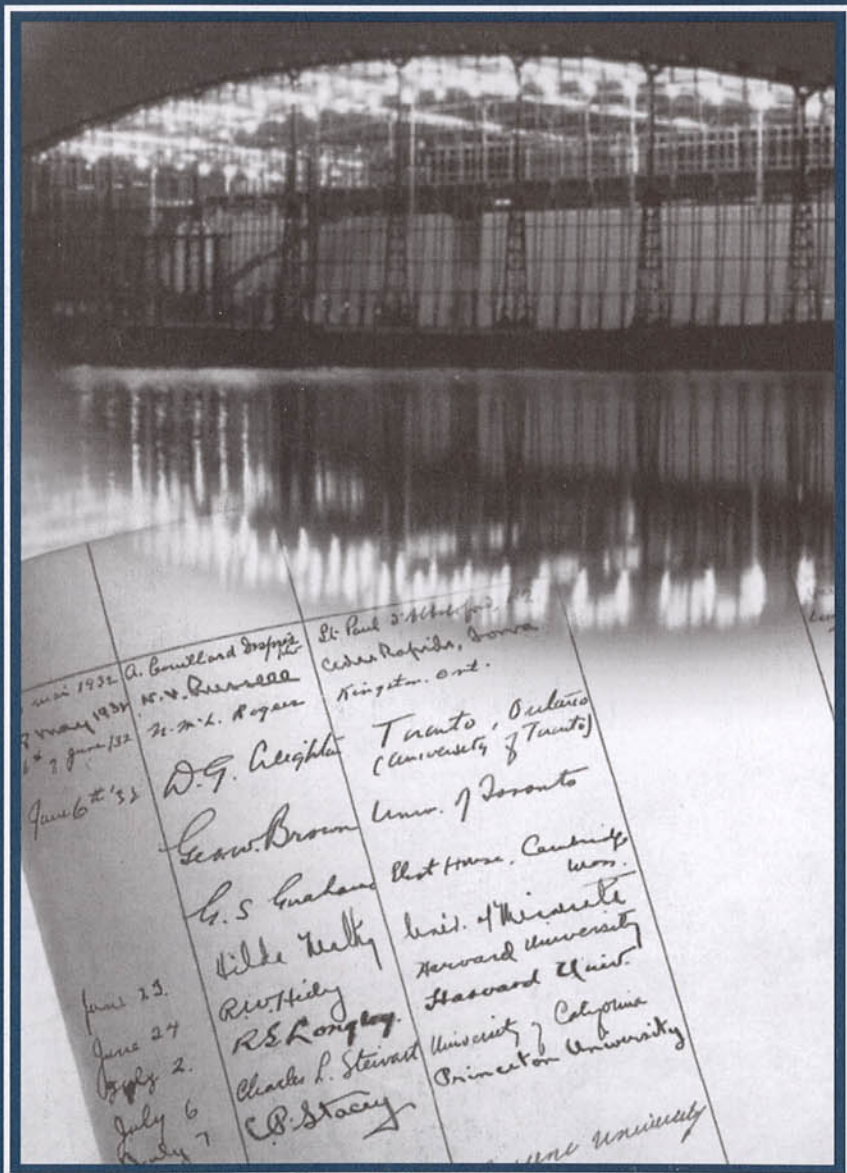 mai 1932 A. Couillard Després ptre St. Paul d'Abbotsford, P.Q.
May 1932 Cedar Rapids, Iowa
June/32 N. McL. Rogers Kingston. Ont.
June 6th '32 D. G. Creighton Toronto, Ontario
(University of Toronto)
Geo. W. Brown Univ. of Toronto
G. S. Graham Eliot House, Cambridge
Mass.
June 23. Hilda Neatby Univ. of Minnesota
June 24 R. W. Hidy Harvard University
July 2. R. S. Longley. Harvard Univ.
July 6 Charles L. Stewart University of California
July 7 C. P. Stacey Princeton University
University